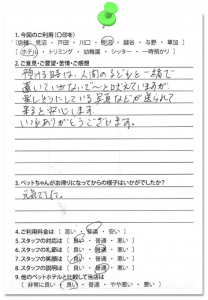 1.今回のご利用(○印を)
(店舗・見沼・戸田・川口・蛇沼・越谷・与野・草加)
(ホテル・トリミング・幼稚園・シッター・一時預かり)
2.ご意見・ご要望・苦情・ご感想
預ける時は、人間の子どもと一緒で
置いていかないで〜と吠えているが
楽しそうにしている写真などが送られて
来ると安心します。
いつもありがとうございます。
3.ペットちゃんがお帰りになってからの様子はいかがでしたか?
元気でした。
4.ご利用料金は [ 高い・普通・安い ]
5.スタッフの対応は [ 良い・普通・悪い ]
6.スタッフの挨拶は [ 良い・普通・悪い ]
7.スタッフの笑顔は [ 良い・普通・悪い ]
8.スタッフの説明は [ 良い・普通・悪い ]
9.他のペットホテルと比較して当店は
(非常に良い・良い・普通・やや悪い・悪い)